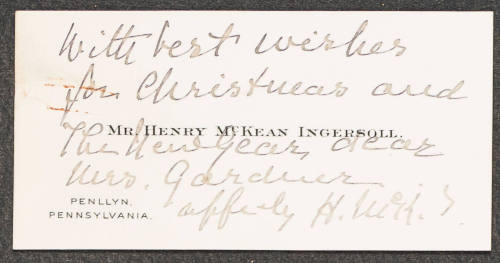 With best wishes
for Christmas and
MR. HENRY McKEAN INGERSOLL.
The New Year, dear
Mrs. Gardner
PENLLYN,
PENNSYLVANIA.
affly H. McK. I.